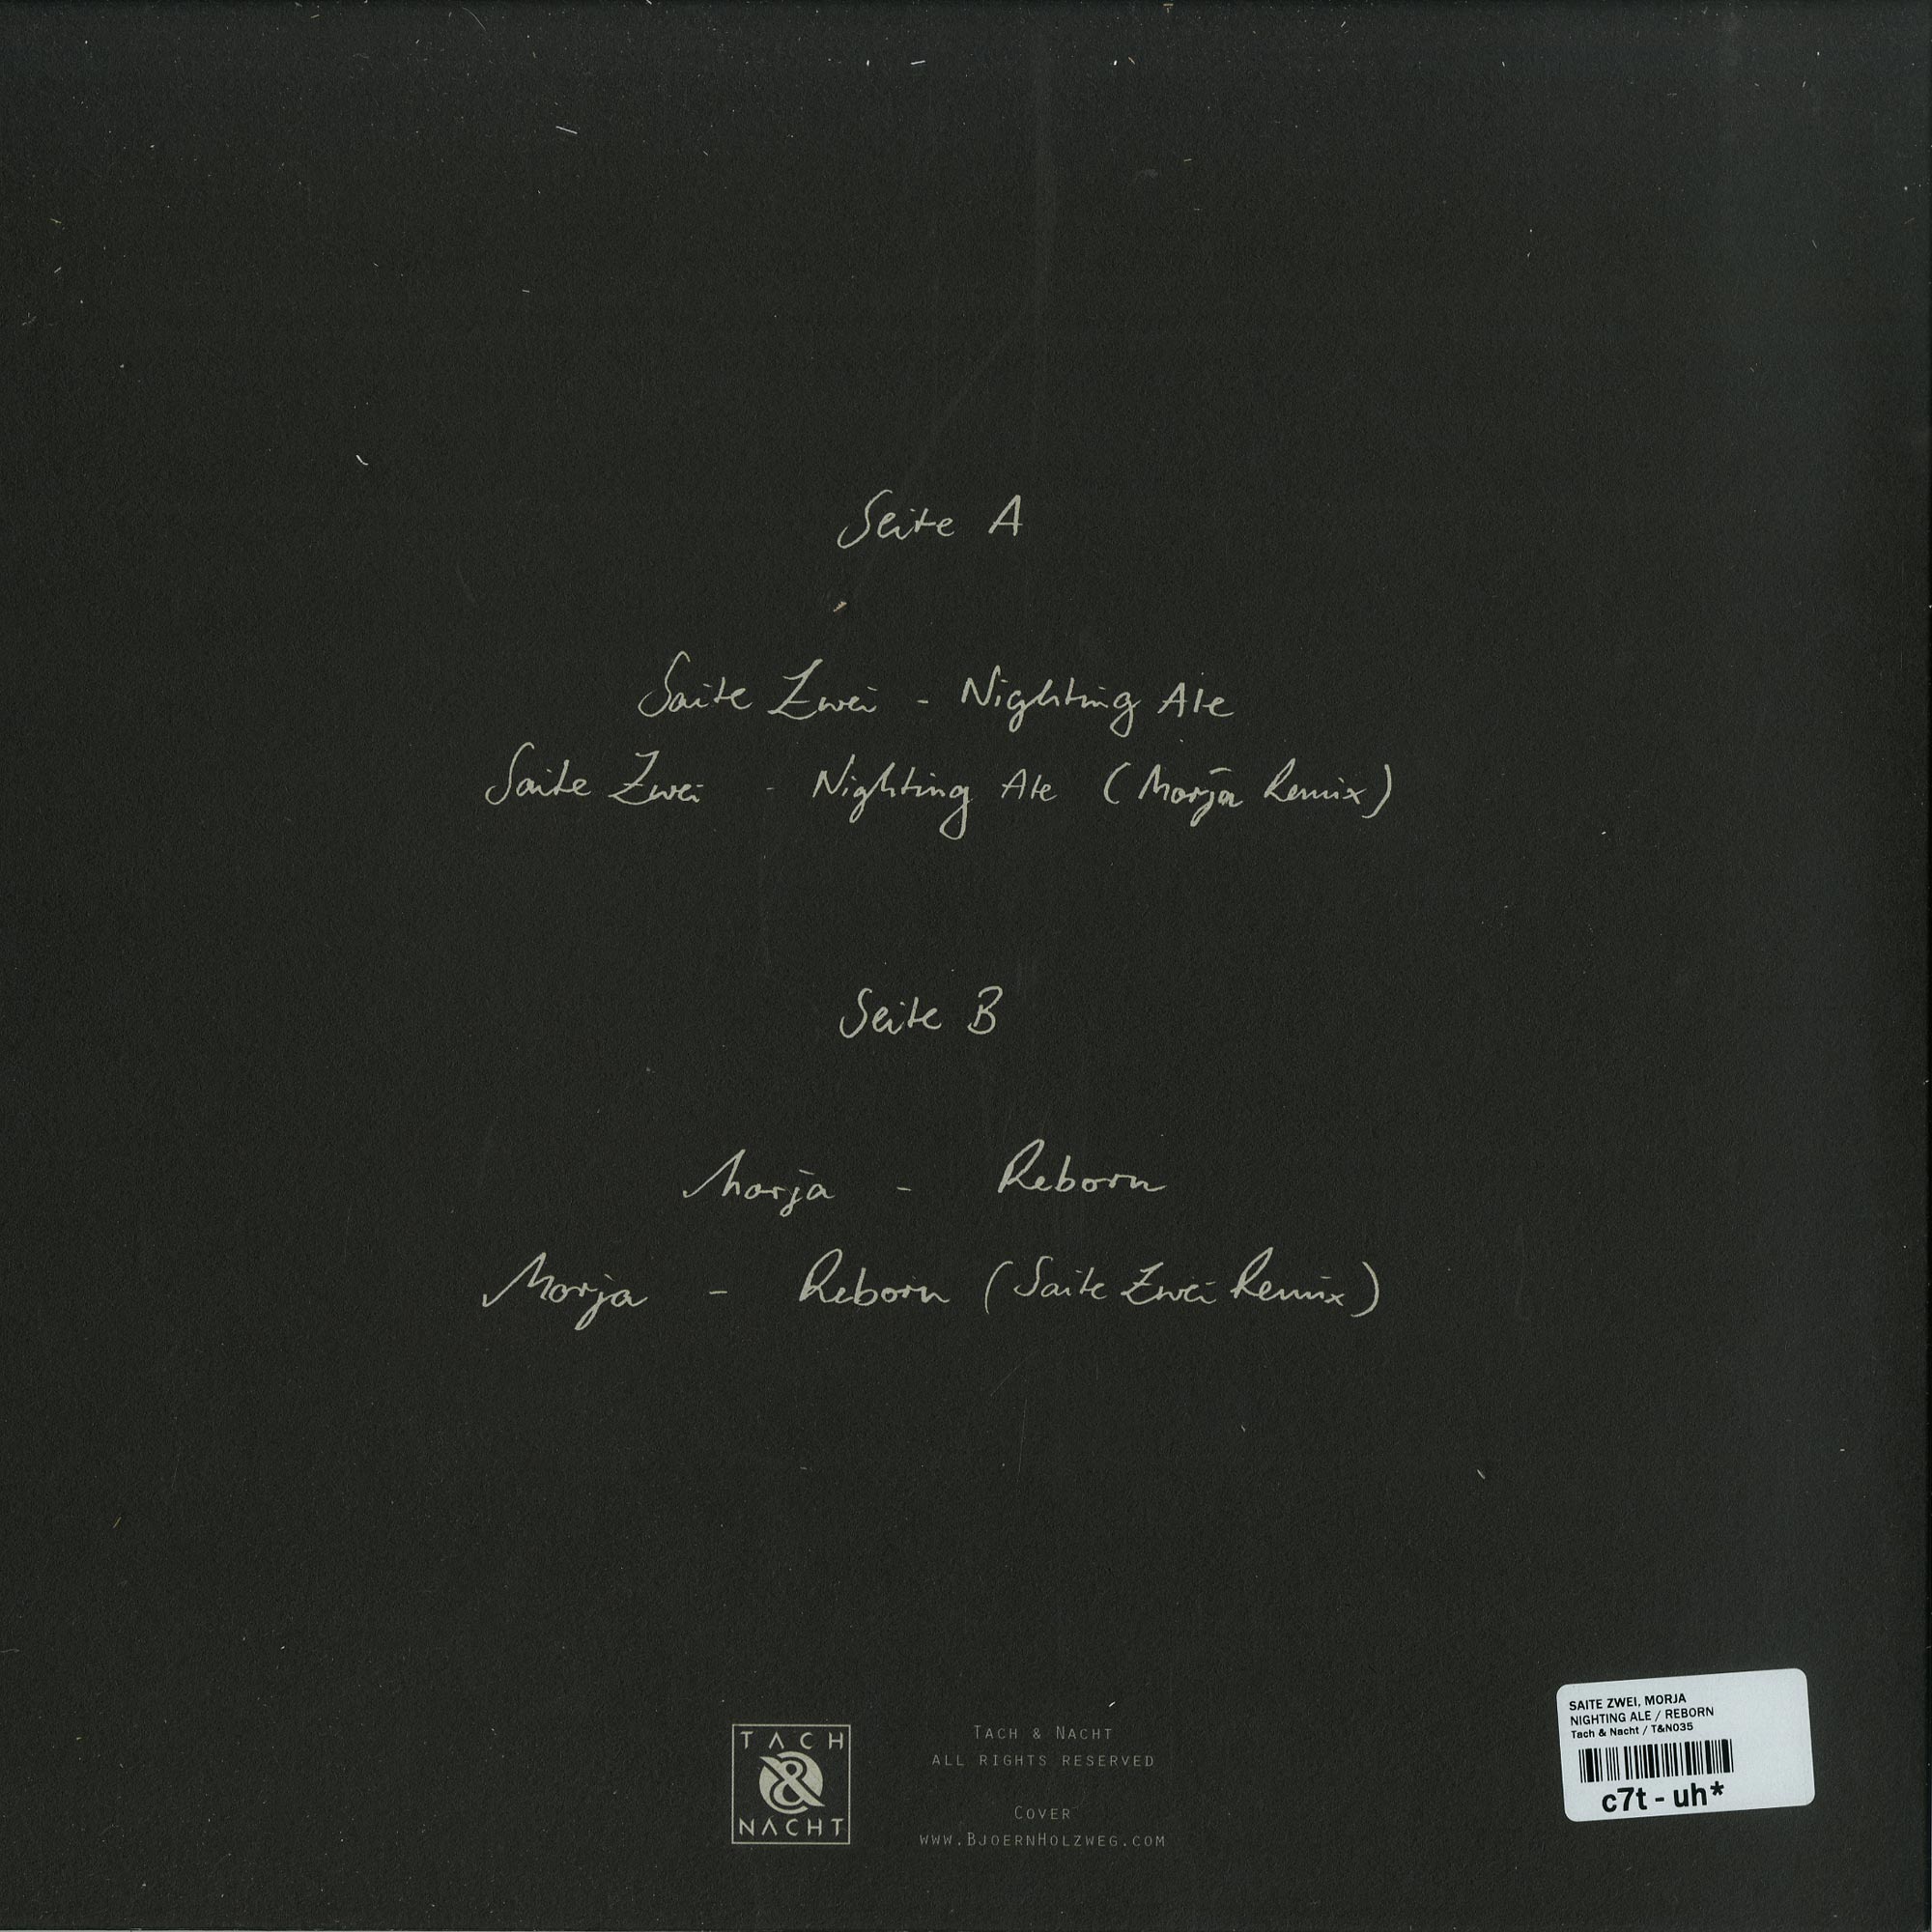 Seite A
Saite Zwei - Nighting Ale
Saite Zwei - Nighting Ale (Morja Remix)
Seite B
Morja - Reborn
Morja - Reborn (Saite Zwei Remix)
TACH
&
NACHT
TACH & NACHT
ALL RIGHTS RESERVED
COVER
WWW.BJOERNHOLZWEG.COM
SAITE ZWEI, MORJA
NIGHTING ALE / REBORN
Tach & Nacht / T&N035
c7t - uh*